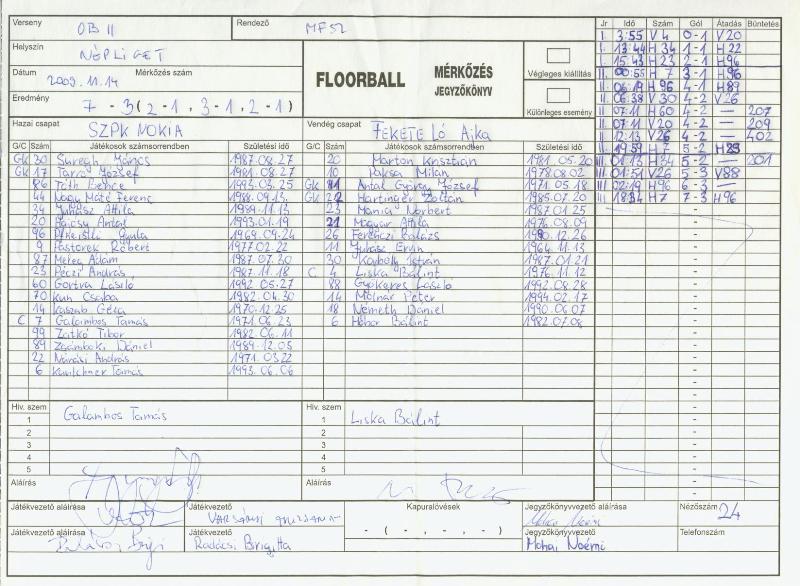 Verseny OB II
Rendező MFSZ
Helyszín NÉPLIGET
Dátum 2009.11.14 Mérkőzés szám
Eredmény 7 - 3 (2-1, 3-1, 2-1)
FLOORBALL
MÉRKŐZÉS
JEGYZŐKÖNYV
Végleges kiállítás
Különleges esemény
Hazai csapat SZPK NOKIA
Vendég csapat FEKETE LÓ Ajka
G/C Szám Játékosok számsorrendben Születési idő G/C Szám Játékosok számsorrendben Születési idő
GK 30 1987.08.27 20 Marton Krisztián 1981.05.20
GK 17 József 1981.08.27 10 Paksa Milán 1978.08.02
86 Tóth Bence 1993.03.25 GK Antal György József 1971.05.18
44 Nagy Máté Ferenc 1988.09.13 GK Hartinger Zoltán 1985.07.20
34 Juhász Attila 1989.11.13 23 Mánia Norbert 1987.01.25
20 Antal 1993.01.19 21 Magyar Attila 1976.08.09
96 Gyula 1969.09.24 26 Balázs 1990.12.26
9 Pástorek Róbert 1977.02.22 11 Juhász Ervin 1964.11.13
87 Ádám 1987.07.30 30 István 1987.01.21
23 Péczi András 1987.11.18 C 4 Liska Bálint 1976.11.12
60 László 1992.05.27 88 László 1992.08.28
70 Kun Csaba 1982.04.30 14 Molnár Péter 1994.02.17
14 Kaszab Géza 1970.12.25 18 Németh Dániel 1990.06.07
C 7 Galambos Tamás 1971.06.23 6 Bálint 1982.07.08
99 Zatkó Tibor 1982.06.11
89 Zsámboki Dániel 1984.12.05
22 András 1971.03.22
6 Tamás 1993.06.06
Jr Idő Szám Gól Átadás Büntetés
I. 3:55 V4 0-1 V20
I. 13:44 H34 1-1 H22
I. 15:43 H23 2-1 H96
II. 00:55 H7 3-1 H96
II. 06:19 H96 4-1 H89
II. 06:38 V30 4-2 V26
II. 07:11 H60 4-2 — 207
II. 07:11 V20 4-2 — 209
II. 12:13 V26 4-2 — 402
II. 19:59 H7 5-2 H23
III. 01:13 H34 5-2 — 201
III. 01:51 V26 5-3 V88
III. 02:19 H96 6-3 —
III. 18:34 H7 7-3 H96
Hiv. szem Hiv. szem
1 Galambos Tamás 1 Liska Bálint
2 2
3 3
4 4
5 5
Aláírás Aláírás
Játékvezető aláírása Játékvezető Kapuralövések Jegyzőkönyvvezető aláírása Nézőszám 24
- ( - , - , - )
Játékvezető aláírása Játékvezető Radácsi Brigitta Jegyzőkönyvvezető Mohai Noémi Telefonszám